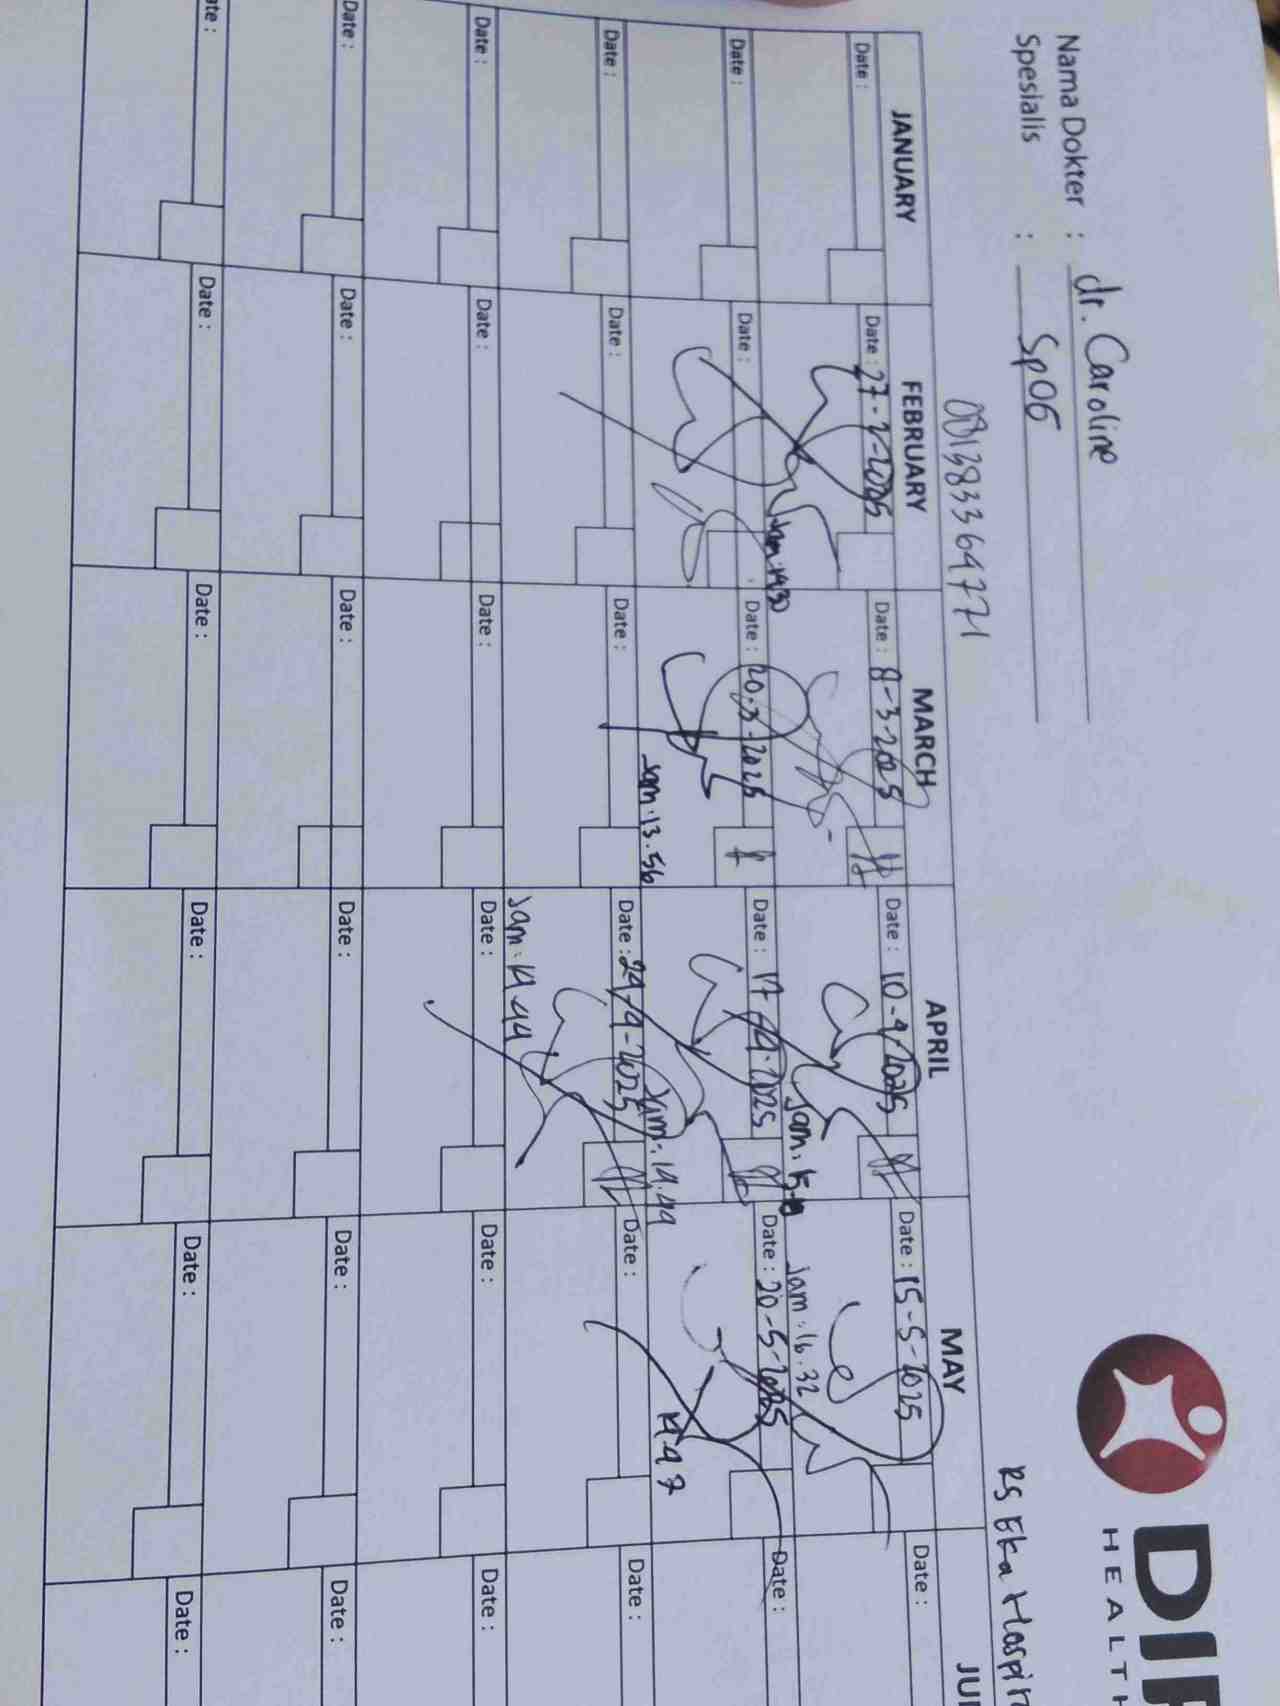 DI
HEALTH
RS Eka Hospi
Nama Dokter : dr. Caroline
Spesialis : SpOG
081383364771
JANUARY FEBRUARY MARCH APRIL MAY JU
Date : Date : 27-2-2025 Date : 8-3-2025 Date : 10-4-2025 Date : 15-5-2025 Date :
Jam: 1430 Jam: Jam: 16.32
Date : Date : Date : 20-3-2025 Date : 17-4-2025 Date : 20-5-2025 Date :
Jam: 13.56 Jam: 14.49 1447
Date : Date : Date : Date : 24-4-2025 Date : Date :
Jam: 14.44
Date : Date : Date : Date : Date : Date :
Date : Date : Date : Date : Date : Date :
ate : Date : Date : Date : Date : Date :